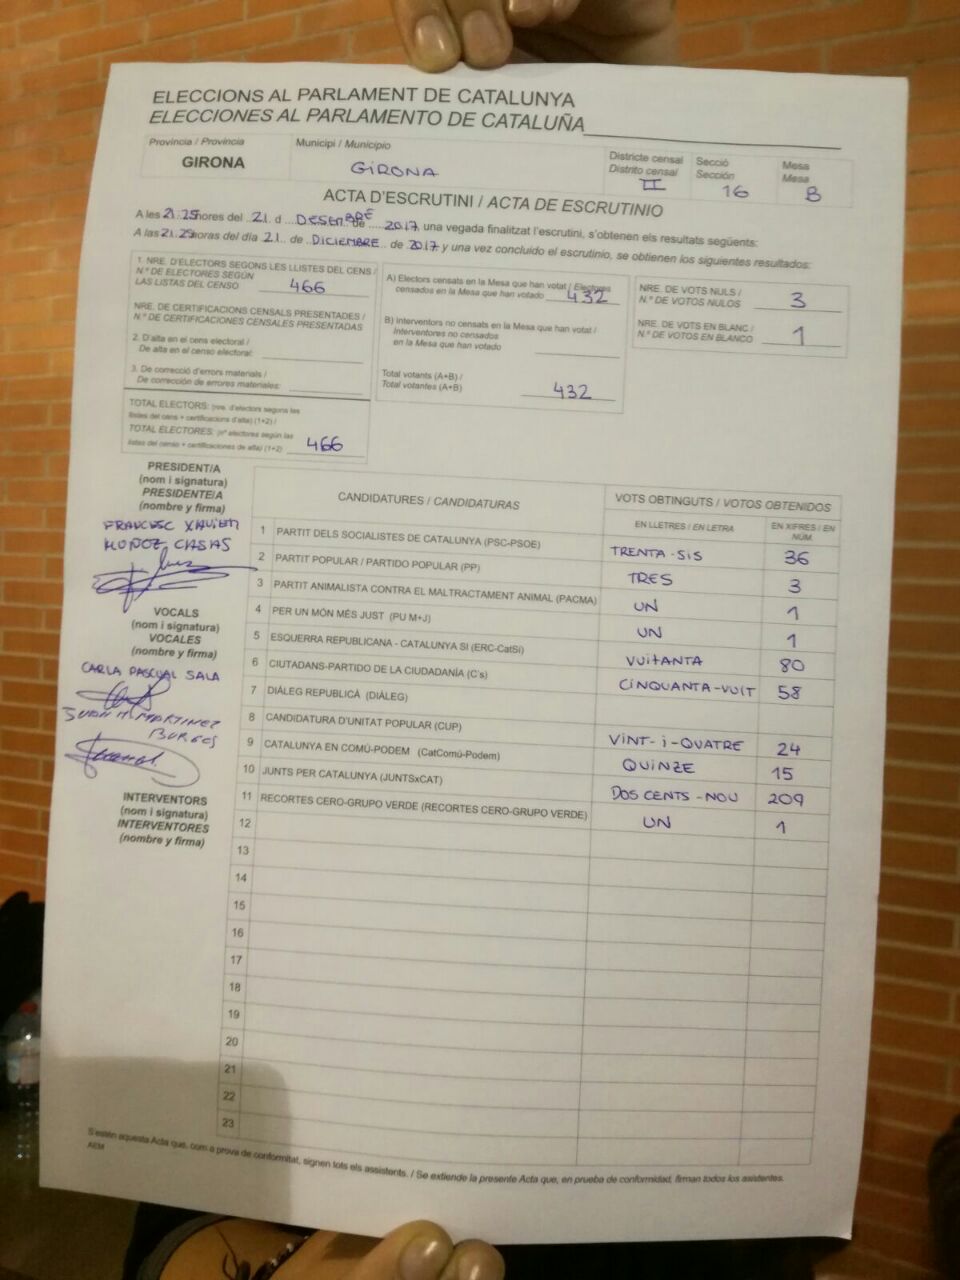 ELECCIONS AL PARLAMENT DE CATALUNYA
ELECCIONES AL PARLAMENTO DE CATALUÑA
Província / Provincia
GIRONA
Municipi / Municipio
GIRONA
Districte censal
Distrito censal
II
Secció
Sección
16
Mesa
Mesa
B
ACTA D'ESCRUTINI / ACTA DE ESCRUTINIO
A les 21:25 hores del 21 d DESEMBRE de 2017 una vegada finalitzat l'escrutini, s'obtenen els resultats següents:
A las 21.25 horas del día 21 de DICIEMBRE de 2017 y una vez concluido el escrutinio, se obtienen los siguientes resultados:
1. NRE. D'ELECTORS SEGONS LES LLISTES DEL CENS /
N.º DE ELECTORES SEGÚN
LAS LISTAS DEL CENSO 466
NRE. DE CERTIFICACIONS CENSALS PRESENTADES /
N.º DE CERTIFICACIONES CENSALES PRESENTADAS
2. D'alta en el cens electoral /
De alta en el censo electoral:
3. De correcció d'errors materials /
De corrección de errores materiales:
TOTAL ELECTORS: (nre. d'electors segons les
llistes del cens + certificacions d'alta) (1+2) /
TOTAL ELECTORES: (nº electores según las
listas del censo + certificaciones de alta) (1+2) 466
A) Electors censats en la Mesa que han votat / Electores
censados en la Mesa que han votado 432
B) Interventors no censats en la Mesa que han votat /
Interventores no censados
en la Mesa que han votado
Total votants (A+B) /
Total votantes (A+B) 432
NRE. DE VOTS NULS /
N.º DE VOTOS NULOS 3
NRE. DE VOTS EN BLANC /
N.º DE VOTOS EN BLANCO 1
PRESIDENT/A
(nom i signatura)
PRESIDENTE/A
(nombre y firma)
FRANCESC XAVIER
MUÑOZ CASAS
VOCALS
(nom i signatura)
VOCALES
(nombre y firma)
CARLA PASCUAL SALA
JUAN M. MARTINEZ
BURGOS
INTERVENTORS
(nom i signatura)
INTERVENTORES
(nombre y firma)
CANDIDATURES / CANDIDATURAS
VOTS OBTINGUTS / VOTOS OBTENIDOS
EN LLETRES / EN LETRA
EN XIFRES / EN NÚM.
1 PARTIT DELS SOCIALISTES DE CATALUNYA (PSC-PSOE) TRENTA-SIS 36
2 PARTIT POPULAR / PARTIDO POPULAR (PP) TRES 3
3 PARTIT ANIMALISTA CONTRA EL MALTRACTAMENT ANIMAL (PACMA) UN 1
4 PER UN MÓN MÉS JUST (PU M+J) UN 1
5 ESQUERRA REPUBLICANA - CATALUNYA SI (ERC-CatSí) VUITANTA 80
6 CIUTADANS-PARTIDO DE LA CIUDADANÍA (C's) CINQUANTA-VUIT 58
7 DIÀLEG REPUBLICÀ (DIÀLEG)
8 CANDIDATURA D'UNITAT POPULAR (CUP) VINT-i-QUATRE 24
9 CATALUNYA EN COMÚ-PODEM (CatComú-Podem) QUINZE 15
10 JUNTS PER CATALUNYA (JUNTSxCAT) DOS CENTS-NOU 209
11 RECORTES CERO-GRUPO VERDE (RECORTES CERO-GRUPO VERDE) UN 1
12
13
14
15
16
17
18
19
20
21
22
23
S'estén aquesta Acta que, com a prova de conformitat, signen tots els assistents. / Se extiende la presente Acta que, en prueba de conformidad, firman todos los asistentes.
AEM